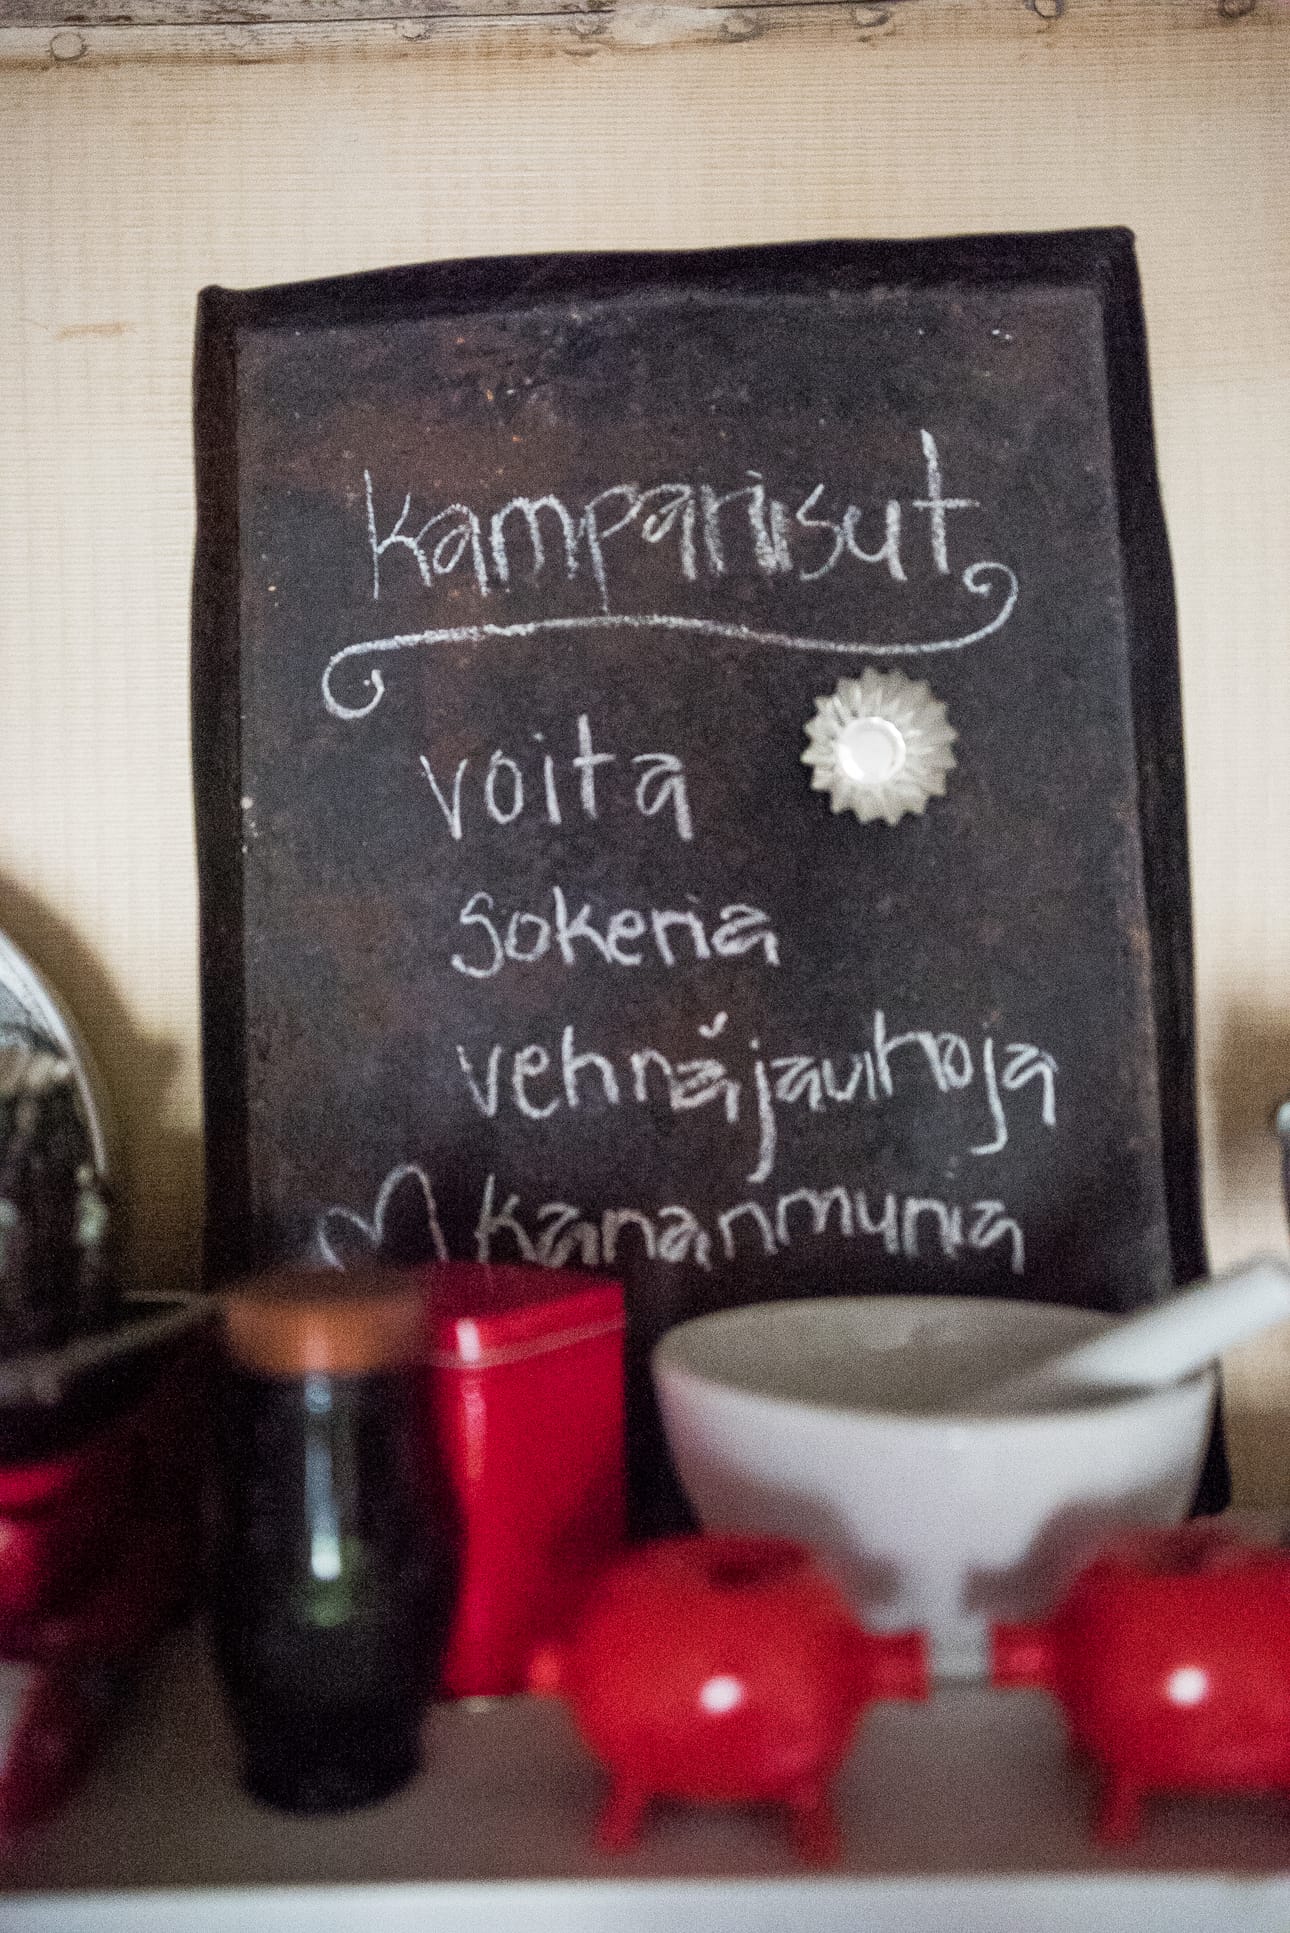 kampariisut
voita
sokeria
vehnäjauhoja
kananmunia